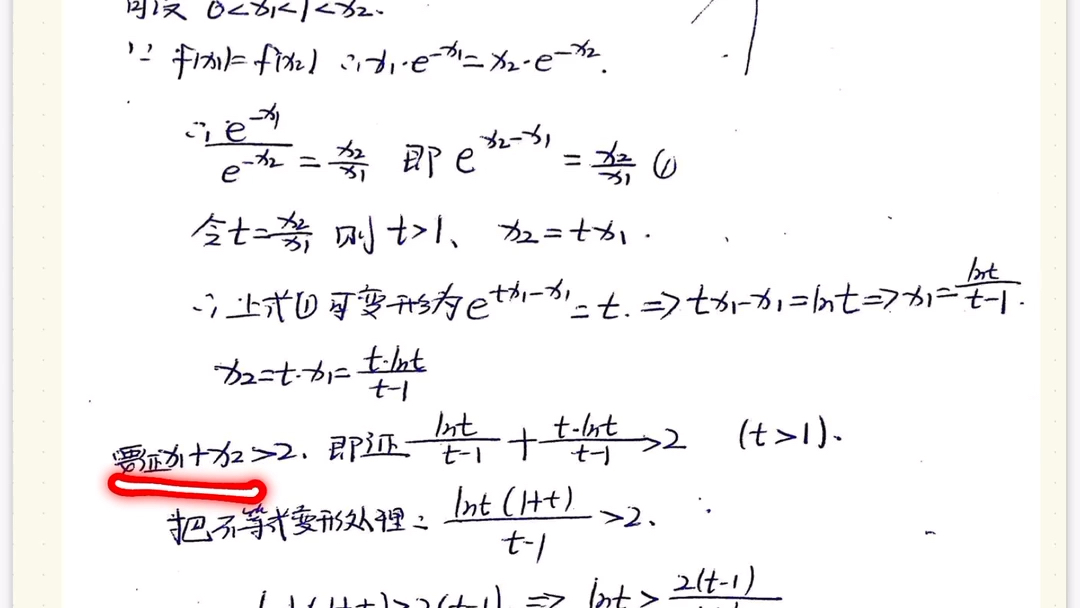 可设 0<x₁<1<x₂.
∵ f(x₁)=f(x₂) ∴x₁·e^{-x₁}=x₂·e^{-x₂}.
∴ e^{-x₁}/e^{-x₂} = x₂/x₁ 即 e^{x₂-x₁} = x₂/x₁ ①
令t=x₂/x₁ 则 t>1、 x₂=tx₁.
∴上式①可变形为e^{tx₁-x₁}=t. ⇒ tx₁-x₁=lnt ⇒ x₁=lnt/(t-1).
x₂=t·x₁=t·lnt/(t-1)
要证x₁+x₂>2. 即证 lnt/(t-1) + t·lnt/(t-1) >2 (t>1).
把不等式变形处理: lnt(1+t)/(t-1) >2.
(1+t)>2(t-1) ⇒ lnt > 2(t-1)